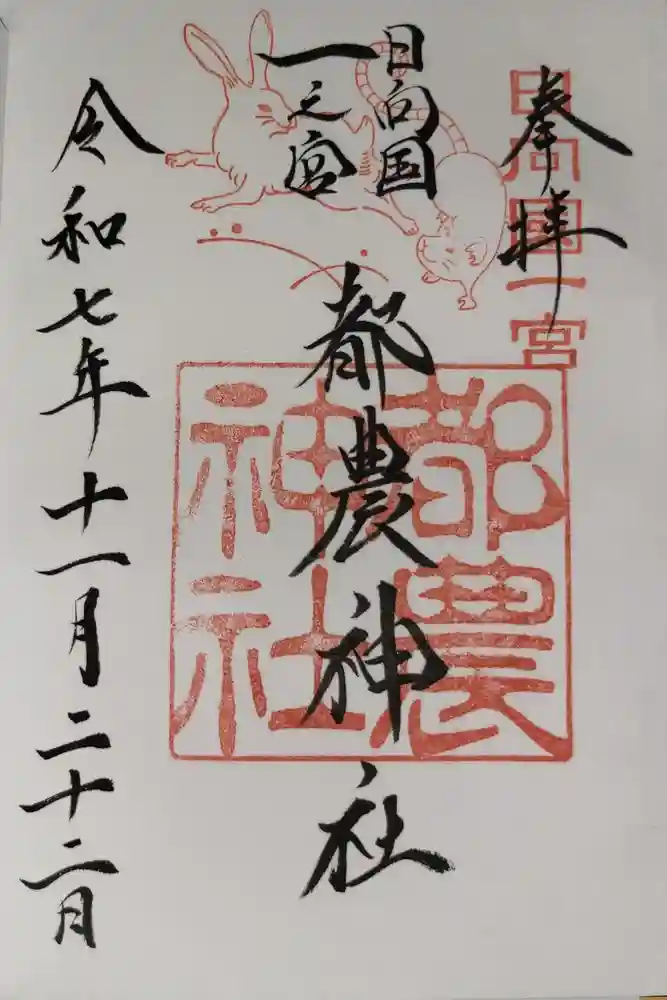 奉拝
日向國一宮
日向国
一之宮
都農神社
都農
神社
令和七年十一月二十二日